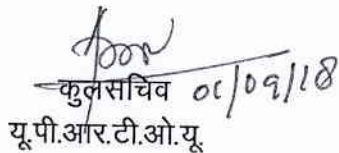 कुलसचिव 01/09/18
यू.पी.आर.टी.ओ.यू.